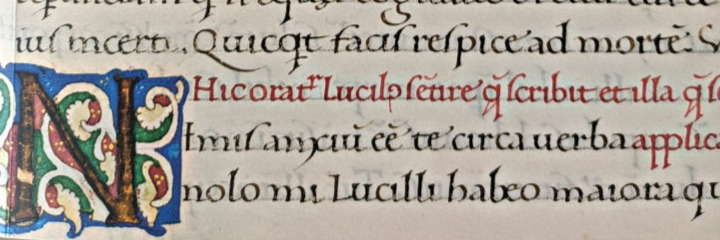 ius incert. Quicqt facis respice ad mortē. V
Hic orat Lucilo sētire q̄ scribit et illa q̄
N Imis anxiū eē te circa uerba applic
nolo mi Lucilli habeo maiora qu